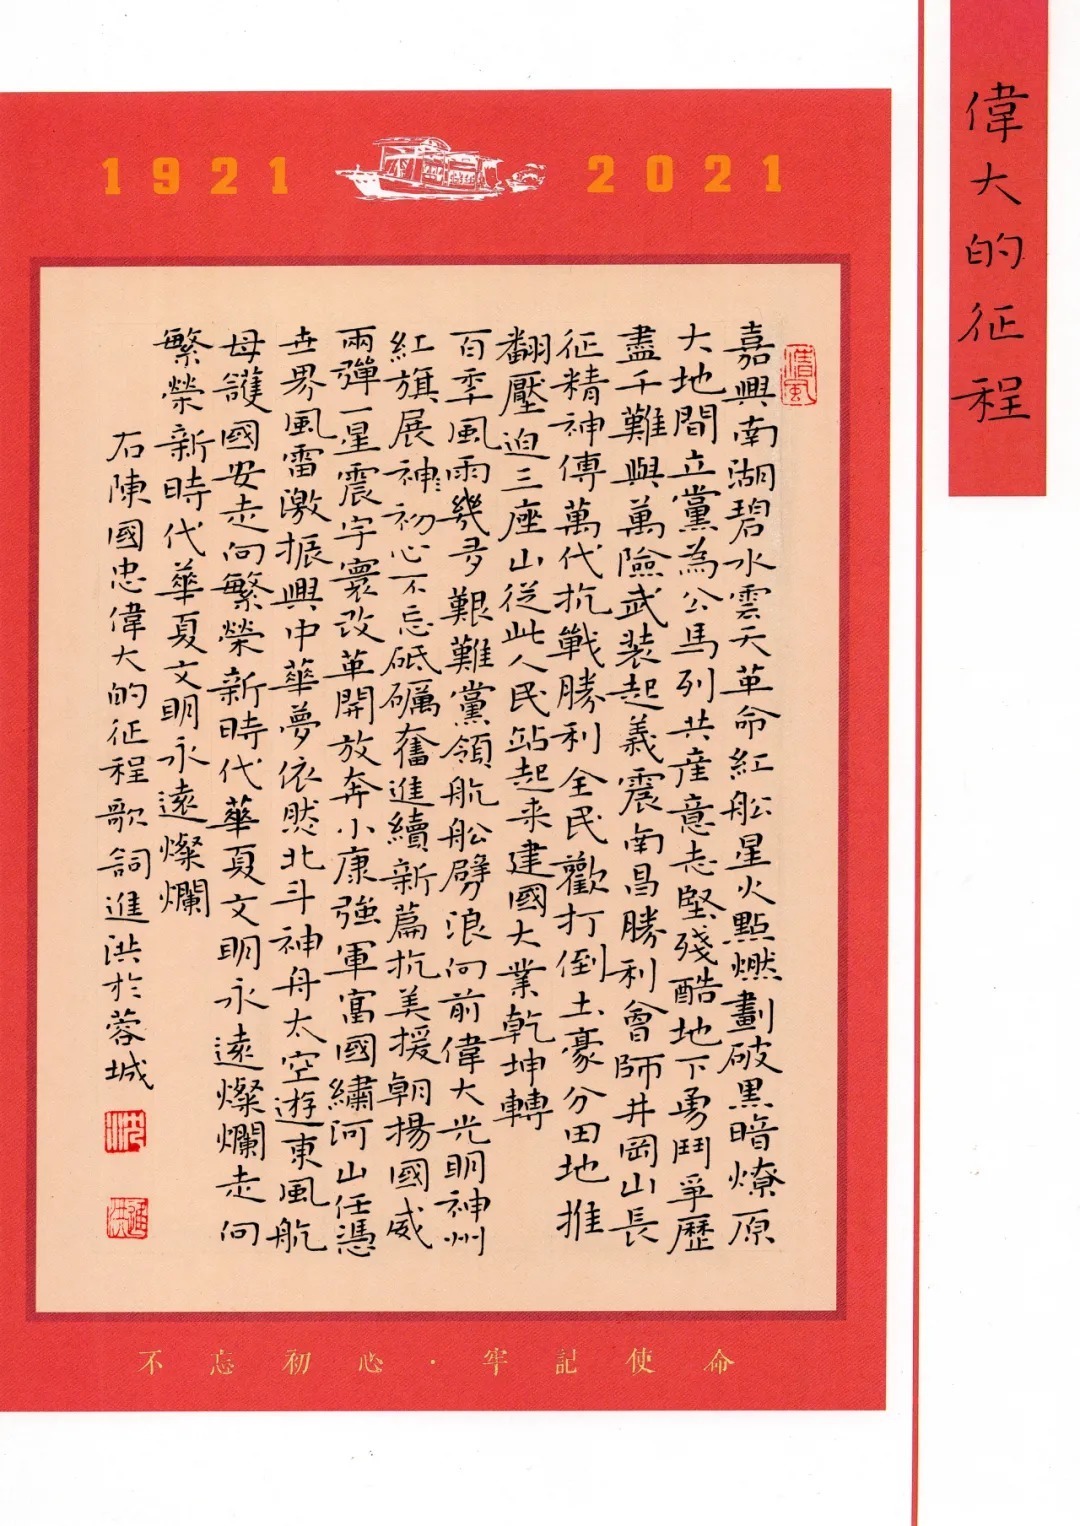 偉大的征程
1921 2021
清風
嘉興南湖碧水雲天革命紅船星火點燃劃破黑暗燎原
大地間立黨為公馬列共産意志堅殘酷地下勇鬥爭歷
盡千難與萬險武装起義震南昌勝利會師井岡山長
征精神傳萬代抗戰勝利全民歡打倒土豪分田地推
翻壓迫三座山從此人民站起来建國大業乾坤轉
百季風雨幾多艱難黨領航船劈浪向前偉大光明神州
紅旗展神初心不忘砥礪奮進續新篇抗美援朝揚國威
兩彈一星震宇寰改革開放奔小康強軍富國繡河山任憑
世界風雷激振興中華夢依然北斗神舟太空遊東風航
母護國安走向繁榮新時代華夏文明永遠燦爛走向
繁榮新時代華夏文明永遠燦爛
右陳國忠偉大的征程歌詞進洪於蓉城
沈
進洪
不忘初心·牢記使命